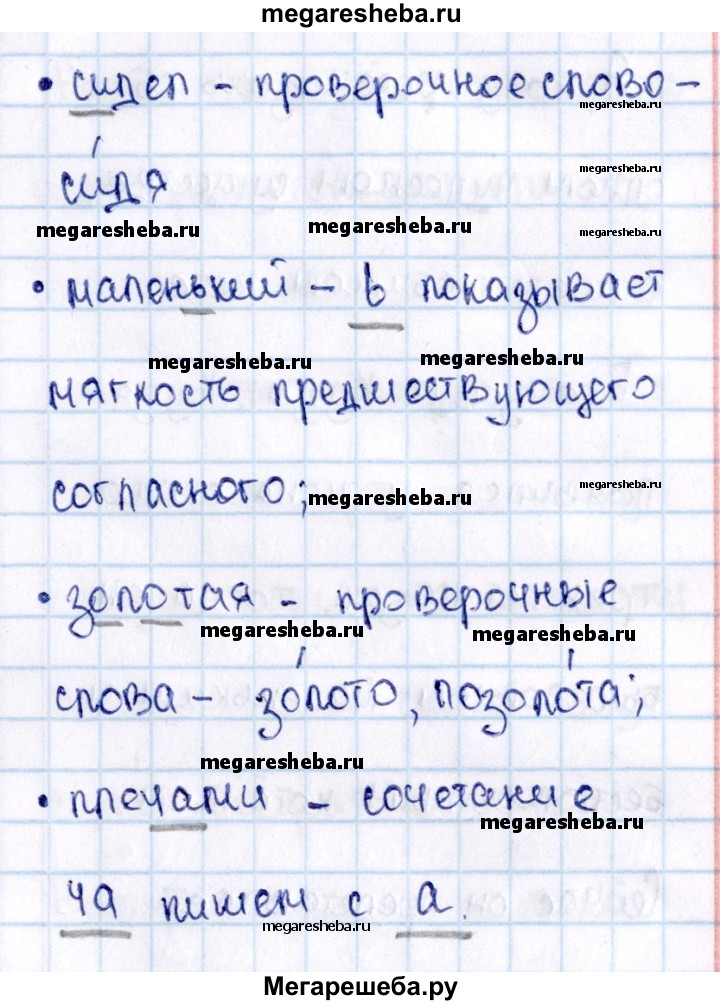 megaresheba.ru
• сидел - проверочное слово -
megaresheba.ru
сидя
megaresheba.ru
megaresheba.ru megaresheba.ru megaresheba.ru
• маленький - ь показывает
megaresheba.ru megaresheba.ru
мягкость предшествующего
согласного; megaresheba.ru megaresheba.ru
• золотая - проверочные
megaresheba.ru megaresheba.ru
слова - золото, позолота;
megaresheba.ru
• плечами - сочетание
megaresheba.ru
ча пишем с а.
megaresheba.ru
Мегарешеба.ру